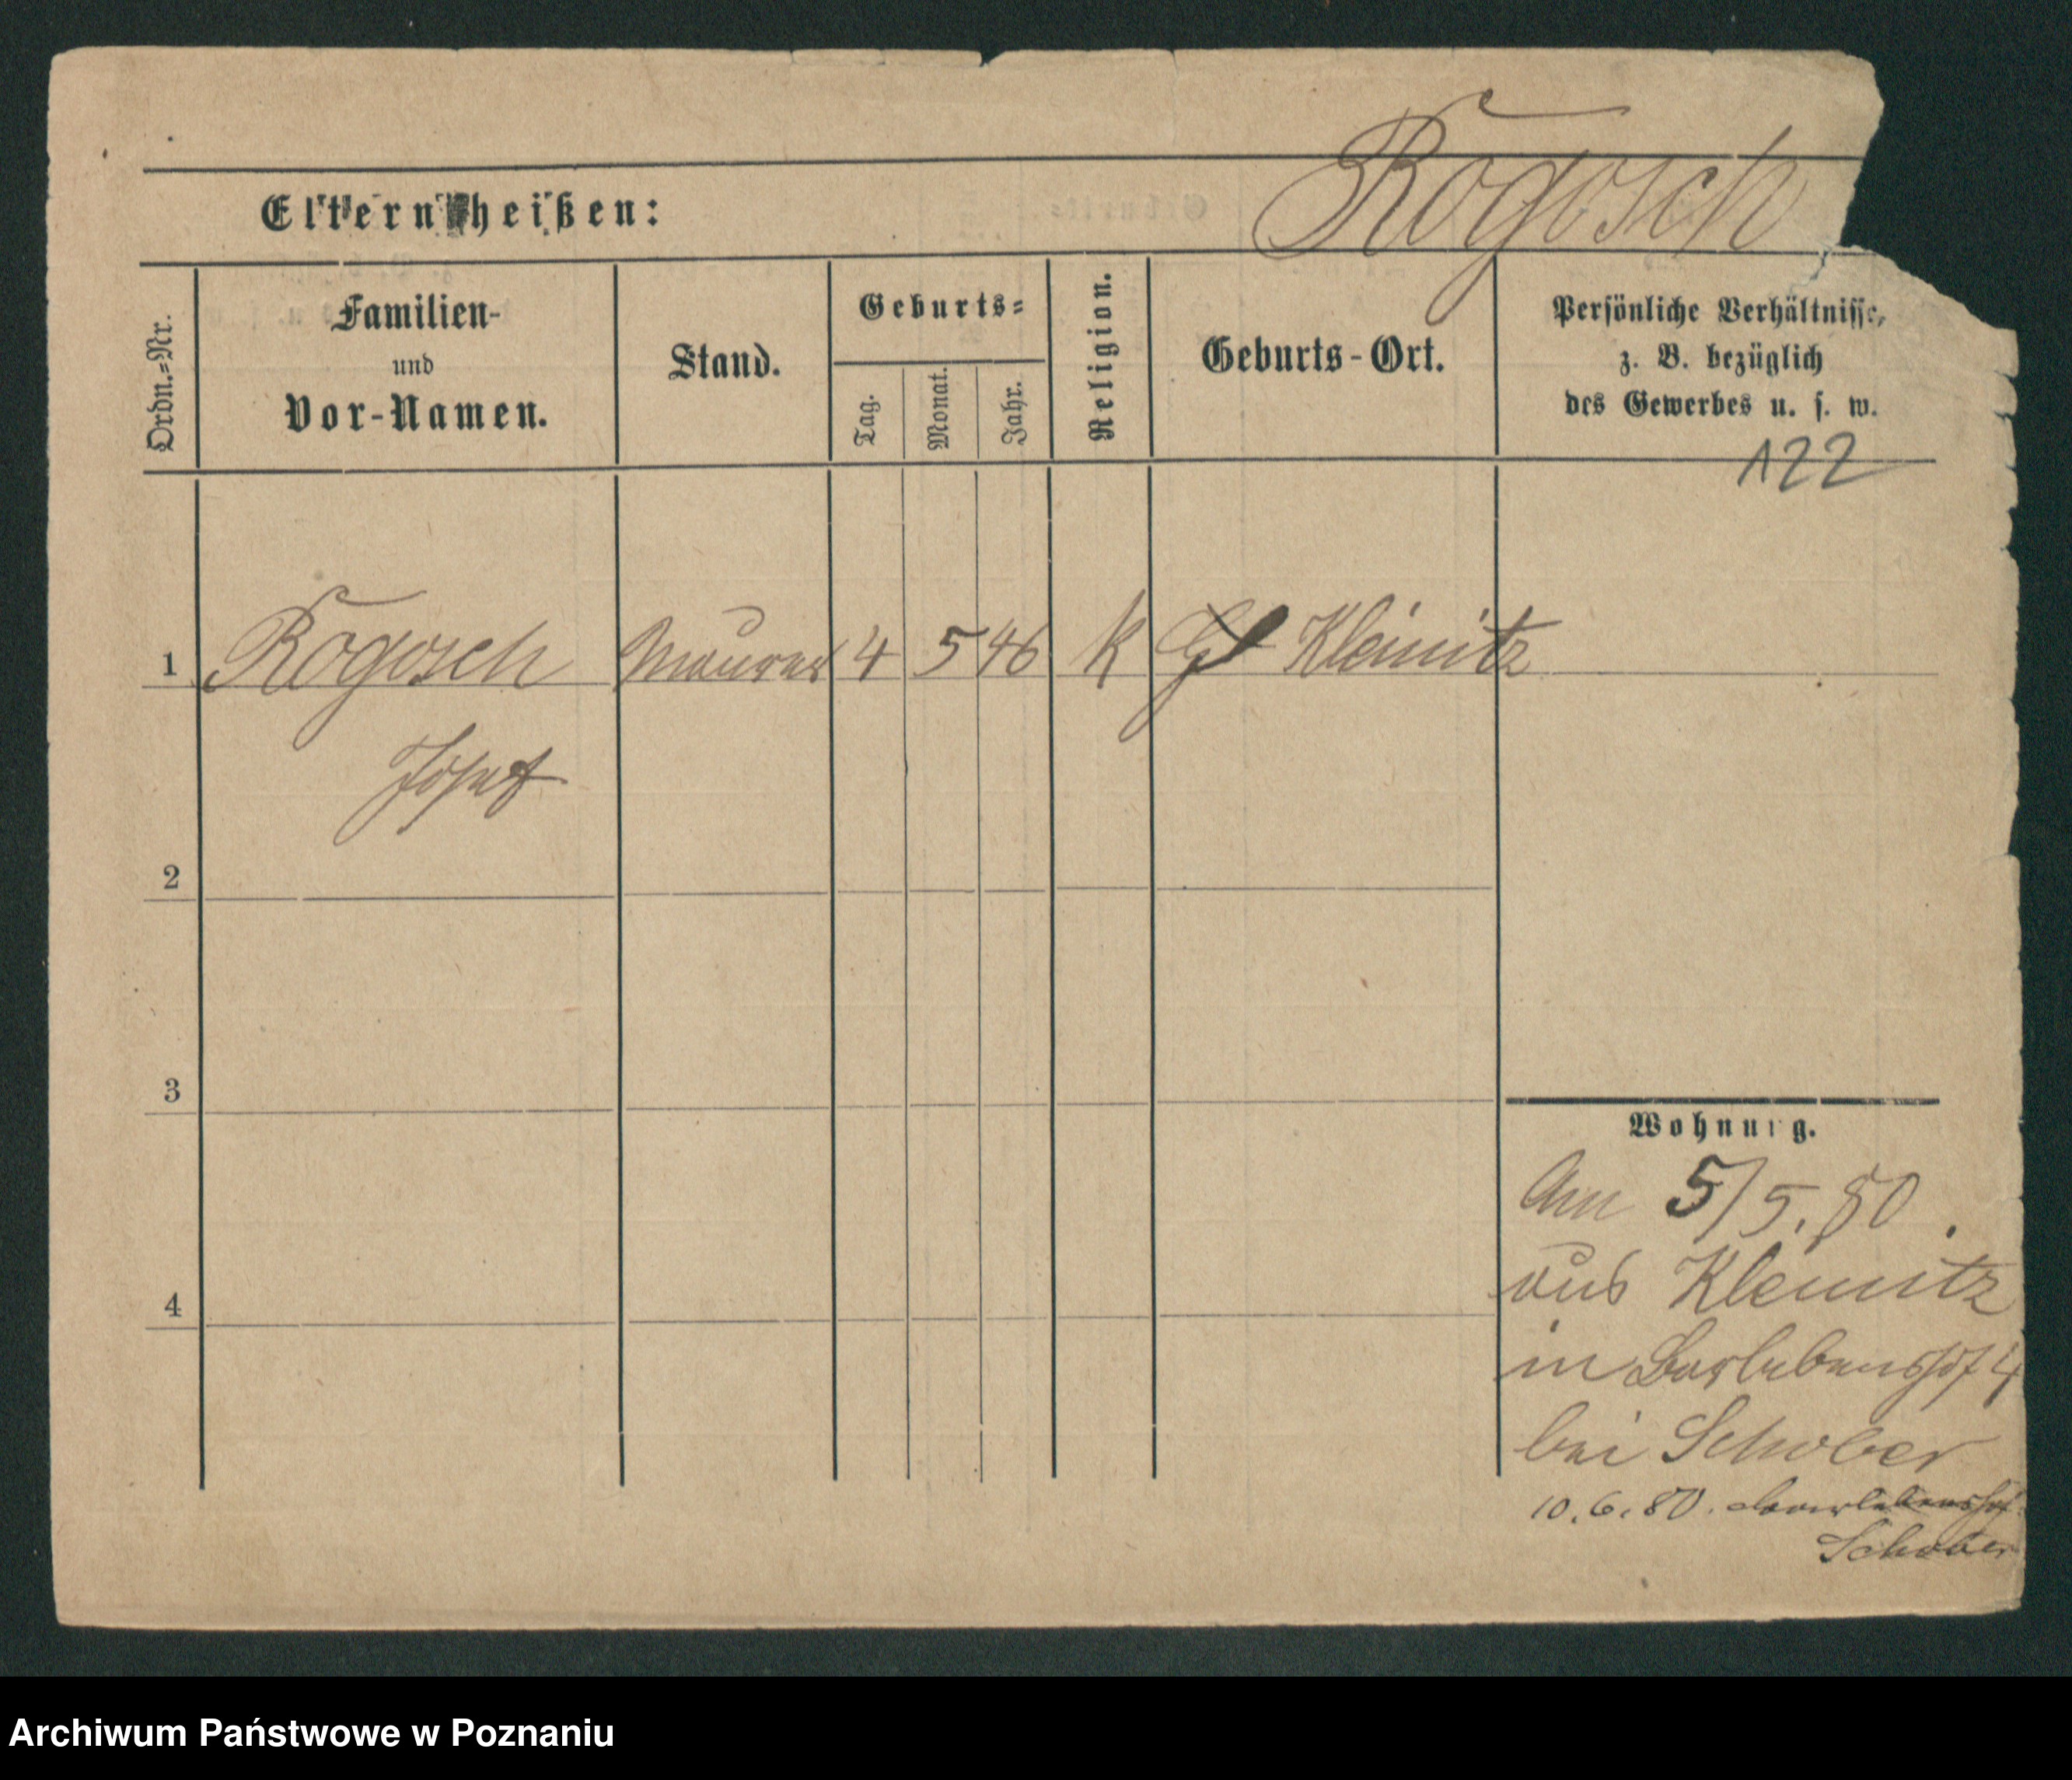 Rogosch
Eltern heißen:
Ordn.=Nr.
Familien-
und
Vor-Namen.
Stand.
Geburts=
Tag.
Monat.
Jahr.
Religion.
Geburts-Ort.
Persönliche Verhältnisse,
z. B. bezüglich
des Gewerbes u. s. w.
122
1 Rogosch Maurer 4 5 46 k Kleinitz
Josef
2
3
4
Wohnung.
Am 5/5.80.
aus Kleinitz
in Barlebenshof 4
bei Schober
10.6.80. Barlebenshof
Schober
Archiwum Państwowe w Poznaniu